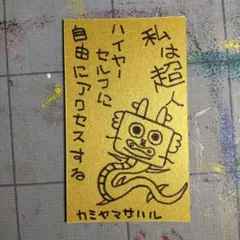 私は超人
ハイヤー
セルフに
自由にアクセスする
カミヤマサハル